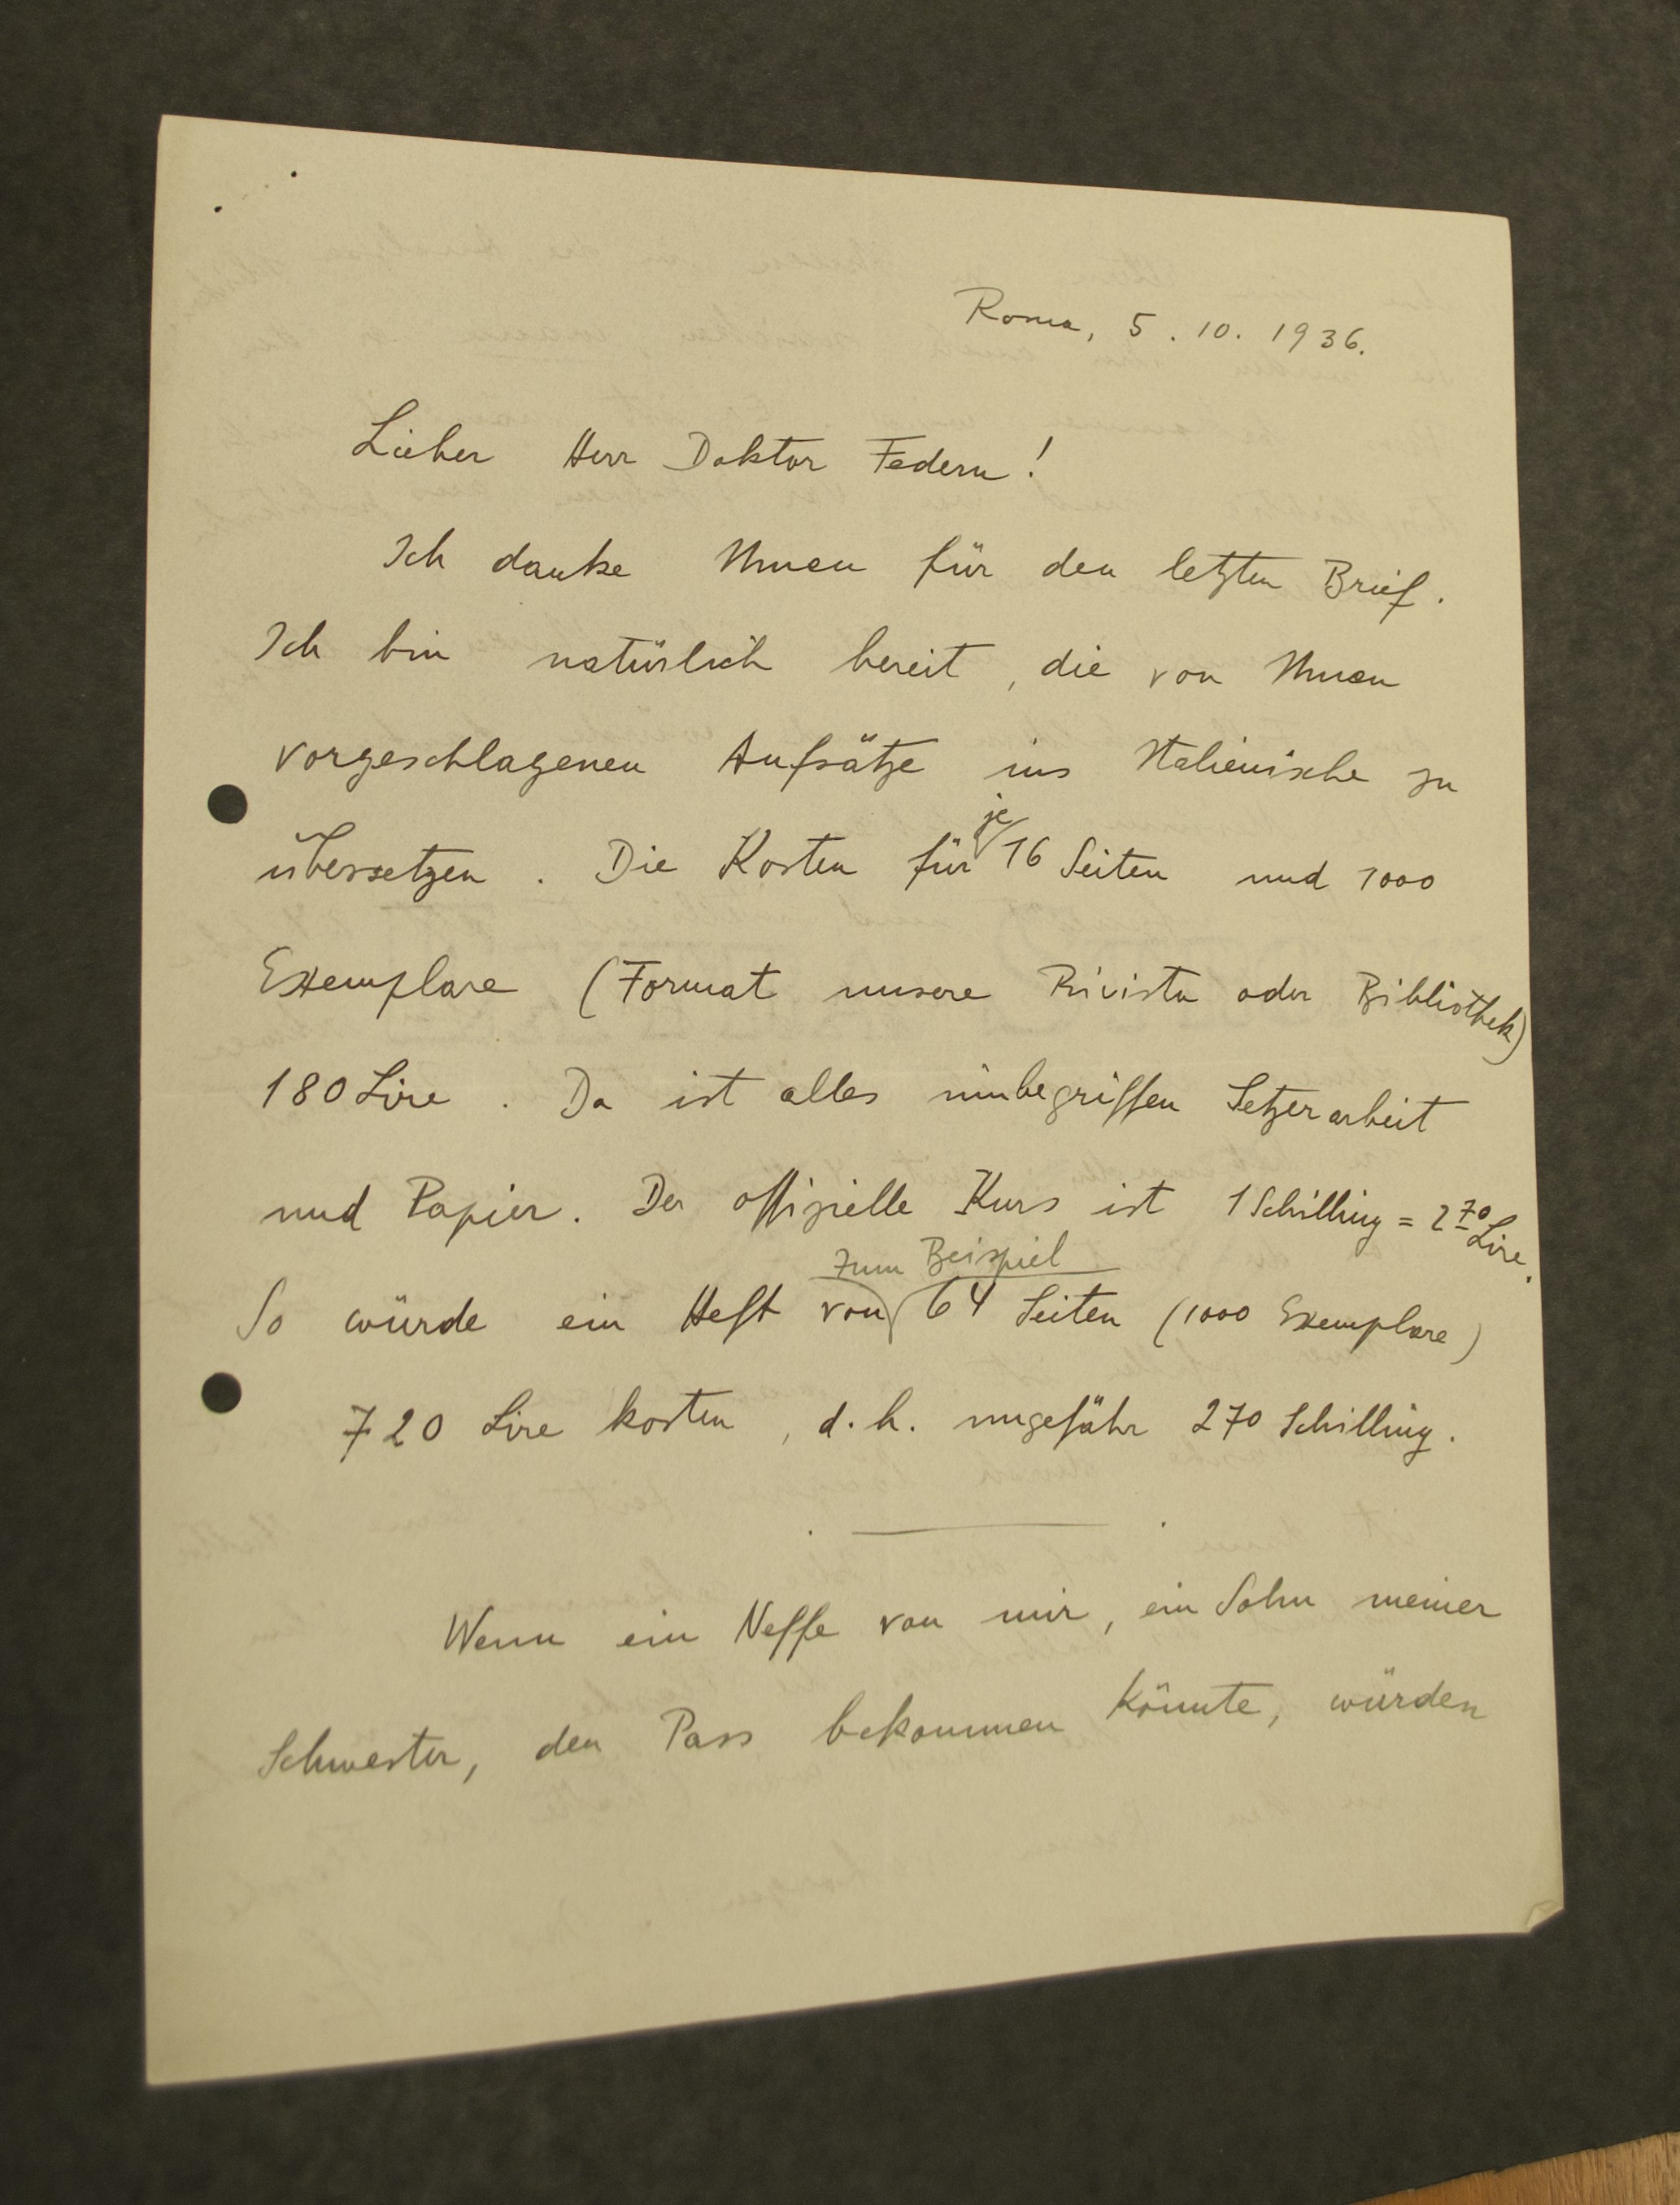 Roma, 5. 10. 1936.
Lieber Herr Doktor Federn!
Ich danke Ihnen für den letzten Brief.
Ich bin natürlich bereit, die von Ihnen
vorgeschlagenen Aufsätze ins Italienische zu
übersetzen. Die Kosten für je 16 Seiten und 1000
Exemplare (Format unsere Rivista oder Bibliothek)
180 Lire. Da ist alles inbegriffen Setzerarbeit
und Papier. Der offizielle Kurs ist 1 Schilling = 2 70 Lire.
So würde ein Heft von zum Beispiel 64 Seiten (1000 Exemplare)
720 Lire kosten, d.h. ungefähr 270 Schilling.
Wenn ein Neffe von mir, ein Sohn meiner
Schwester, den Pass bekommen könnte, würden